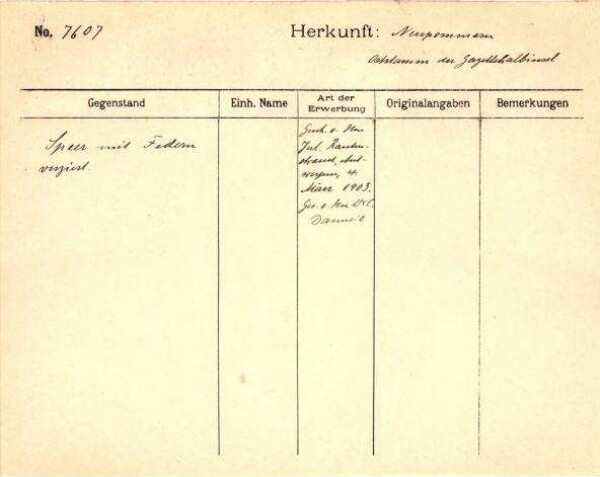 No. 7607
Herkunft: Neupommern
Oststamm der Gazellehalbinsel
Gegenstand
Einh. Name
Art der
Erwerbung
Originalangaben
Bemerkungen
Speer mit Federn
verziert.
Gesch. v. Hrn
Jul. Rauten-
strauch, Ant-
werpen, 4.
März 1903.
Ges. v. Hrn